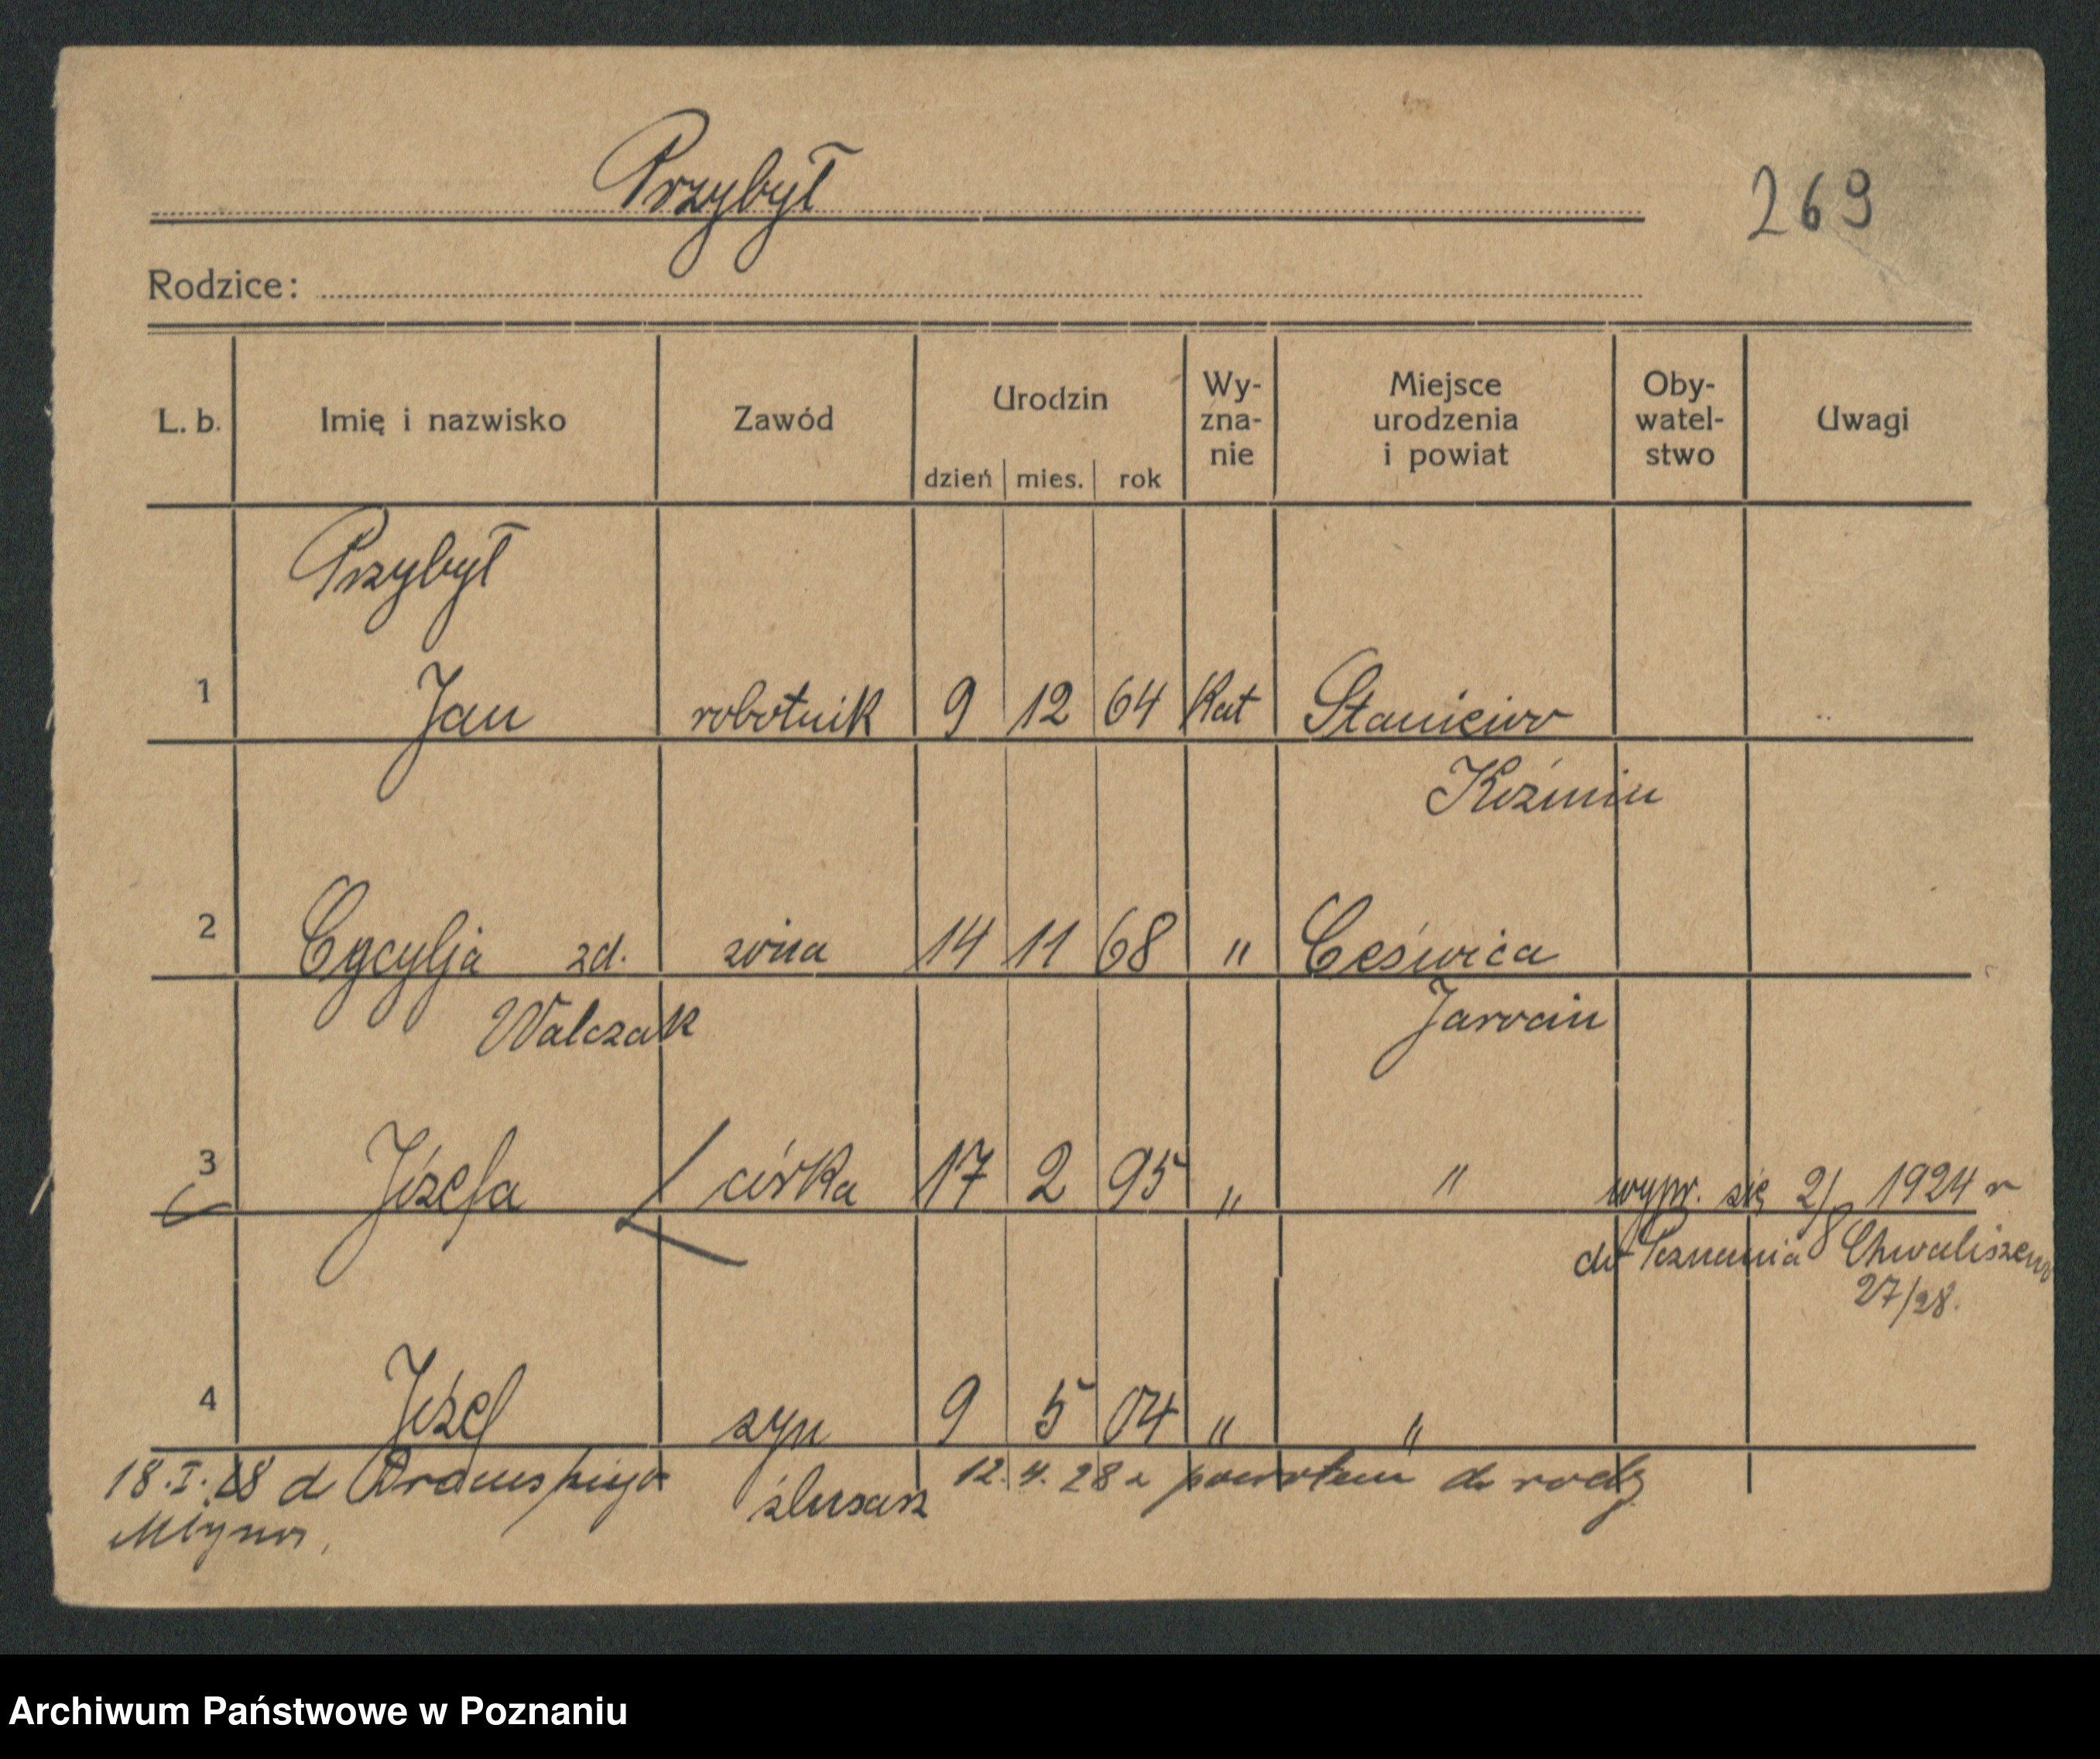 Przybył
269
Rodzice:
L. b. Imię i nazwisko Zawód Urodzin dzień mies. rok Wy-zna-nie Miejsce urodzenia i powiat Oby-watel-stwo Uwagi
Przybył
1 Jan robotnik 9 12 64 Kat Staniew
Koźmin
2 Cecylja zd. żona 14 11 68 " Ceświca
Walczak Jarocin
3 Józefa córka 17 2 95 " " wypr. się 2/8 1924 r
do Poznania Chwaliszewo
27/28.
4 Józef syn 9 5 04 " "
18.I.28 d 12.4.28 z powrotem do rodz
Młyna, ślusarz
Archiwum Państwowe w Poznaniu